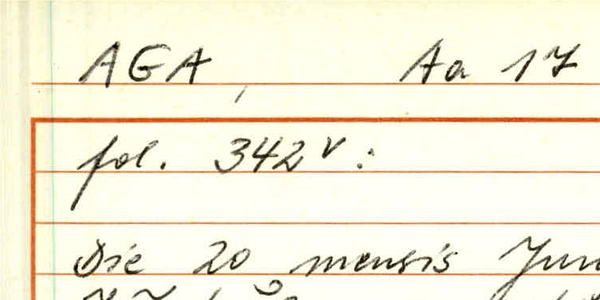 AGA, Aa 17
fol. 342v:
Die 20 mensis Jun